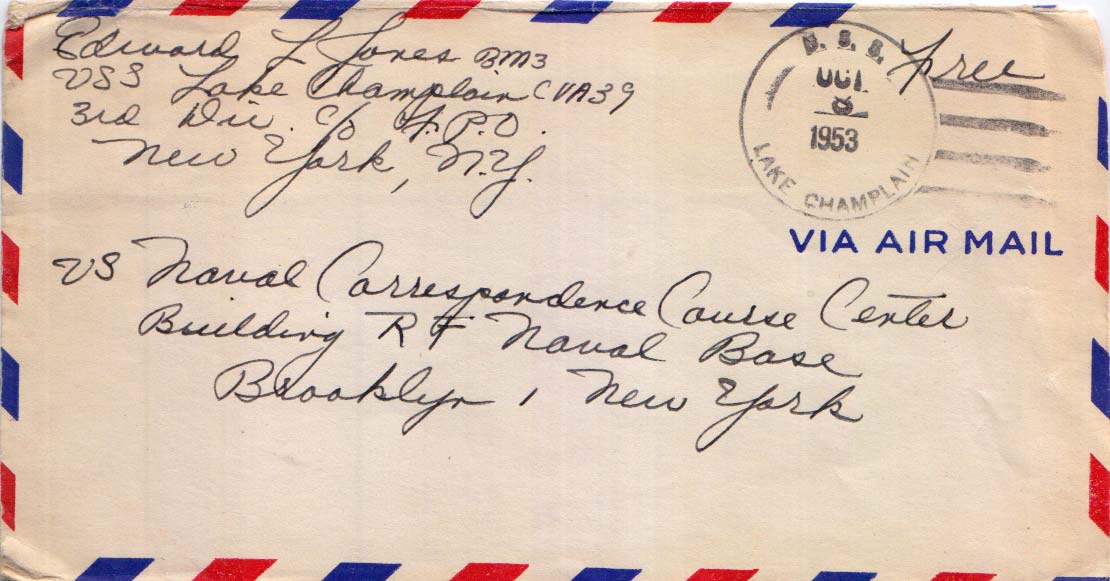 Edward L Jones BM3
USS Lake Champlain CVA39
3rd Div. c/o F.P.O.
New York, N.Y.
U. S. S.
OCT
1953
LAKE CHAMPLAIN
Free
VIA AIR MAIL
US Naval Correspondence Course Center
Building RF Naval Base
Brooklyn 1 New York